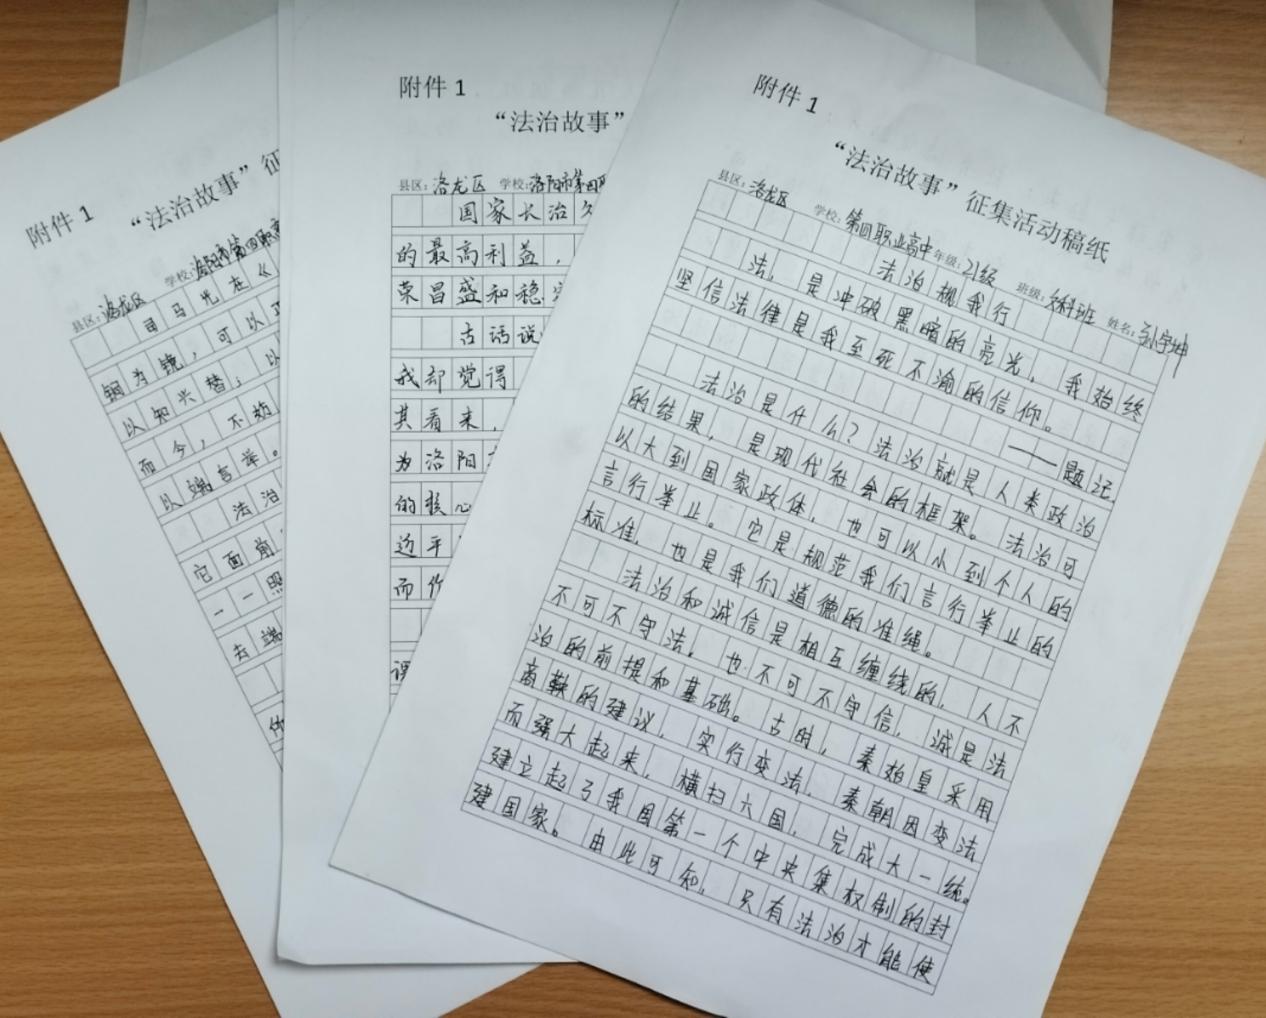 附件1
“法治故事”征
县区：洛龙区 学校：洛阳市第四职高
司马光在《
铜为镜，可以正
以知兴替；以
而今，不妨
以端言举。
法治
它面前
一一照
去端
附件1
“法治故事”
县区：洛龙区 学校：洛阳市第四职
国家长治久
的最高利益，
荣昌盛和稳定
古话说
我却觉得
其看来，
为洛阳
的核心
近平
而作
谓
附件1
“法治故事”征集活动稿纸
县区：洛龙区 学校：第四职业高中 年级：21级 班级：文科班 姓名：孙宇坤
法治规我行
法，是冲破黑暗的亮光，我始终
坚信法律是我至死不渝的信仰。
——题记
法治是什么？法治就是人类政治
的结果，是现代社会的框架。法治可
以大到国家政体，也可以小到个人的
言行举止。它是规范我们言行举止的
标准，也是我们道德的准绳。
法治和诚信是相互缠绕的，人不
不可不守法，也不可不守信，诚是法
治的前提和基础。古时，秦始皇采用
商鞅的建议，实行变法，秦朝因变法
而强大起来，横扫六国，完成大一统。
建立起了我国第一个中央集权制的封
建国家。由此可知，只有法治才能使